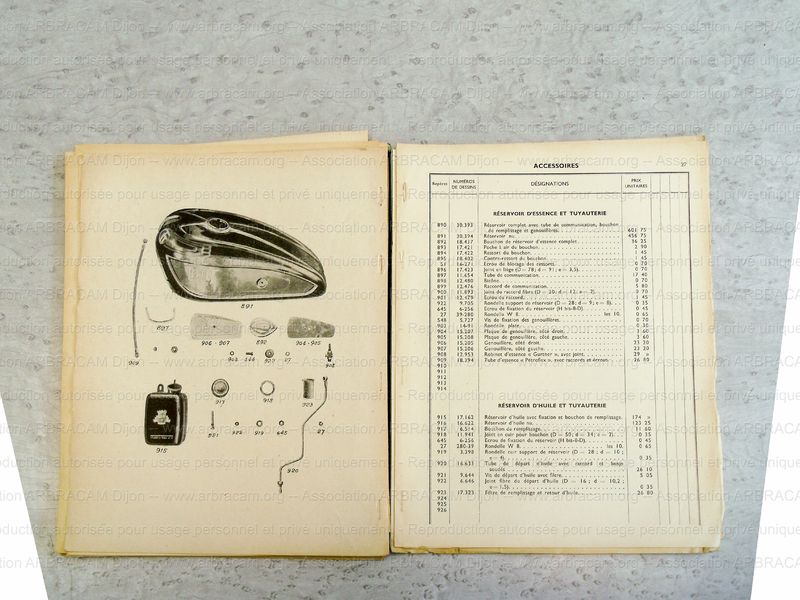 891
897
906 - 907
892
904 - 905
909
903
548
900
27
908
917
918
923
915
881
922
919
645
27
920
ACCESSOIRES
27
Repères
NUMÉROS DE DESSINS
DÉSIGNATIONS
PRIX UNITAIRES
RÉSERVOIR D'ESSENCE ET TUYAUTERIE
890 30.393 Réservoir complet avec tube de communication, bouchon
de remplissage et genouillères. 601 75
891 30.394 Réservoir nu. 456 75
892 18.417 Bouchon de réservoir d'essence complet. 36 25
893 17.421 Poche à air du bouchon. 2 90
894 17.422 Ressort du bouchon. 1 45
895 18.402 Contre-ressort du bouchon. 1 45
51 16.271 Ecrou de blocage des ressorts. 0 70
896 17.423 Joint en liège (D = 78; d = 9; e = 3,5). 0 70
897 11.654 Tube de communication. 17 40
898 12.480 Bicône. 0 70
899 12.476 Raccord de communication. 5 80
900 11.893 Joints de raccord fibre (D = 20; d = 12; e = 2). 0 70
901 12.479 Ecrou de raccord. 1 45
922 9.705 Rondelle support de réservoir (D = 28; d = 9; e = 8). 0 35
645 6.256 Ecrou de fixation du réservoir (H bis-8-D). 0 45
27 39-280 Rondelle W 8. les 10. 0 65
548 5.727 Vis de fixation des genouillères. 0 70
903 1491 Rondelle plate. 0 30
904 15.207 Plaque de genouillère, côté droit. 3 60
905 15.208 Plaque de genouillère, côté gauche. 3 60
906 15.205 Genouillère, côté droit. 23 20
907 15.206 Genouillère, côté gauche. 23 20
908 12.953 Robinet d'essence « Gurtner », avec joint. 29 »
909 18.394 Tube d'essence « Petroflex », avec raccords et écrous. 36 80
910
911
912
913
914
RÉSERVOIR D'HUILE ET TUYAUTERIE
915 17.162 Réservoir d'huile avec fixation et bouchon de remplissage. 174 »
916 16.622 Réservoir d'huile nu. 123 25
917 6.514 Bouchon du remplissage. 11 60
918 11.941 Joint en cuir pour bouchon (D = 50; d = 34; e = 2). 0 35
645 6-256 Ecrou de fixation du réservoir (H bis-8-D). 0 45
27 280-39 Rondelle W 8. les 10. 0 65
919 3.398 Rondelle cuir support de réservoir (D = 28; d = 10;
e = 4). 0 35
920 16.631 Tube de départ d'huile avec raccord et banjo
soudés. 26 10
921 9.644 Vis de départ d'huile avec filtre. 5 05
922 6.646 Joint fibre du départ d'huile (D = 16; d = 10,2;
e = 1,5). 0 35
923 17.323 Filtre de remplissage et retour d'huile. 26 80
924
925
926
ARBRACAM Dijon -- www.arbracam.org -- Association ARBRACAM Dijon -- www.arbracam.org -- Association
Reproduction autorisée pour usage personnel et privé uniquement